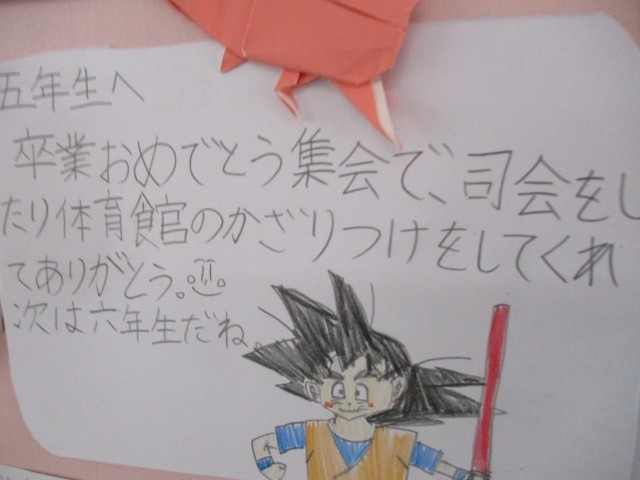 五年生へ
卒業おめでとう集会で、司会をし
たり体育館のかざりつけをしてくれ
てありがとう。
次は六年生だね。